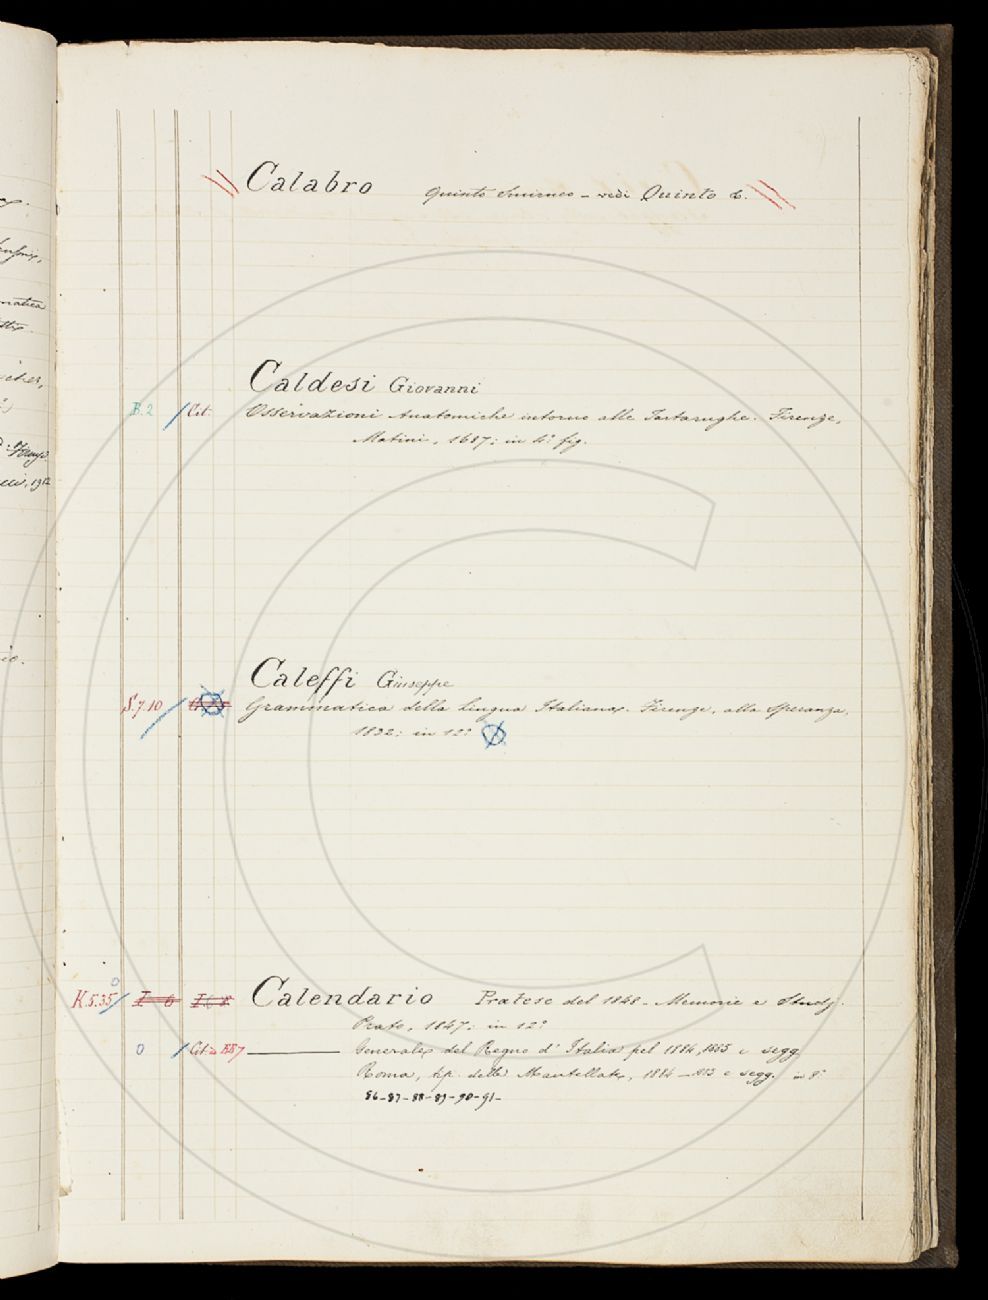 Calabro Quinto Smirneo – vedi Quinto C.
Caldesi Giovanni
B.2 Cit. Osservazioni Anatomiche intorno alle Tartarughe. Firenze,
Matini, 1687; in 4.° fig.
Caleffi Giuseppe
S.7.10 Grammatica della Lingua Italiana. Firenze, alla Speranza,
1832; in 12°
K.5.35 Calendario Pratese del 1848 – Memorie e Studj.
Prato, 1847; in 12°
0 Generale del Regno d'Italia pel 1884, 1885 e segg.
Roma, tip. delle Mantellate, 1884 – e segg. in 8°
86-87-88-89-90-91-